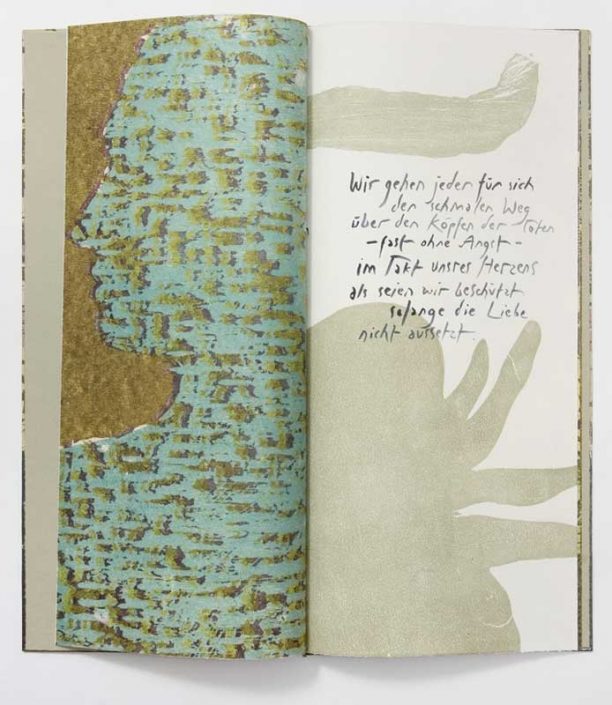 Wir gehen jeder für sich
den schmalen Weg
über den Köpfen der Toten
– fast ohne Angst –
im Takt unsres Herzens
als seien wir beschützt
solange die Liebe
nicht aussetzt.